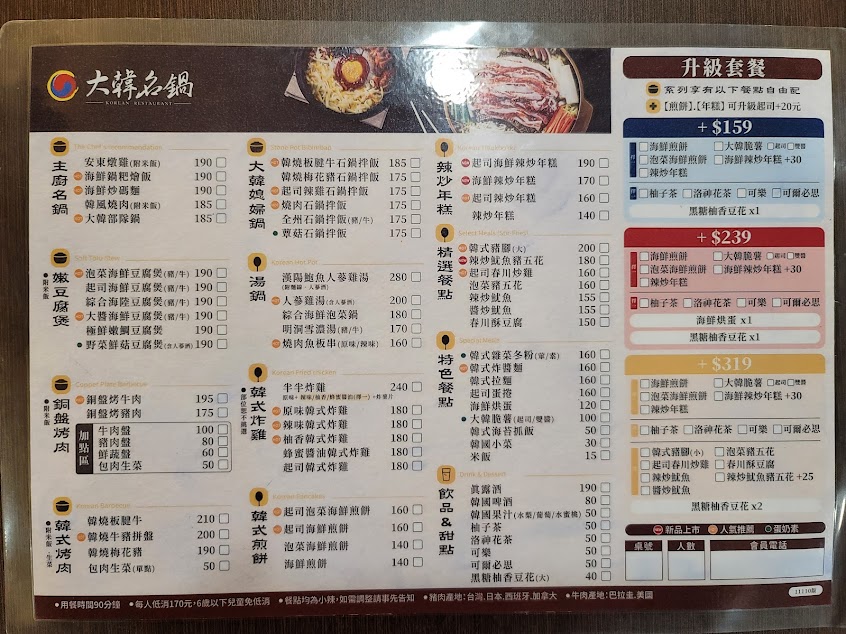 大韓名鍋
KOREAN RESTAURANT
主廚名鍋
安東燉雞(附米飯) 190
海鮮鍋粑燴飯 190
海鮮炒碼麵 190
韓風燒肉(附米飯) 185
大韓部隊鍋 185
嫩豆腐煲
•附米飯
泡菜海鮮豆腐煲(豬/牛) 190
起司海鮮豆腐煲(豬/牛) 190
綜合海陸豆腐煲(豬/牛) 190
大醬海鮮豆腐煲(豬/牛) 190
極鮮嫩鯛豆腐煲 190
野菜鮮菇豆腐煲(含人蔘酒) 190
銅盤烤肉
•附米飯
銅盤烤牛肉 195
銅盤烤豬肉 175
加點區
牛肉盤 100
豬肉盤 80
鮮蔬盤 60
包肉生菜 50
Korean Barbecue
韓式烤肉
•附米飯、生菜
韓燒板腱牛 210
韓燒牛豬拼盤 200
韓燒梅花豬 190
包肉生菜(單點) 50
大韓媳婦鍋
Stone Pot Bibimbap
韓燒板腱牛石鍋拌飯 185
韓燒梅花豬石鍋拌飯 175
起司辣雞石鍋拌飯 175
燒肉石鍋拌飯 175
全州石鍋拌飯(豬/牛) 175
蕈菇石鍋拌飯 175
湯鍋
Korean Hot Pot
漢陽鮑魚人蔘雞湯 280
(附麵線、人蔘酒)
人蔘雞湯(含人蔘酒) 200
綜合海鮮泡菜鍋 180
明洞雪濃湯(豬/牛) 170
燒肉魚板串(原味/辣味) 160
韓式炸雞
Korean Fried Chicken
•部位恕不挑選
半半炸雞 240
原味韓式炸雞 180
辣味韓式炸雞 180
柚香韓式炸雞 180
蜂蜜醬油韓式炸雞 180
起司韓式炸雞 180
韓式煎餅
Korean Pancakes
起司泡菜海鮮煎餅 160
起司海鮮煎餅 160
泡菜海鮮煎餅 140
海鮮煎餅 140
辣炒年糕
起司海鮮辣炒年糕 190
海鮮辣炒年糕 170
起司辣炒年糕 160
辣炒年糕 140
精選餐點
韓式豬腳(大) 200
辣炒魷魚豬五花 180
起司春川炒雞 160
泡菜豬五花 160
辣炒魷魚 155
醬炒魷魚 155
春川酥豆腐 150
特色餐點
韓式雜菜冬粉(葷/素) 160
韓式炸醬麵 160
韓式拉麵 160
起司蛋捲 160
海鮮烘蛋 120
大韓脆薯(起司/雙醬) 100
韓式海苔抓飯 50
韓國小菜 30
米飯 15
飲品&甜點
Drink & Dessert
真露酒 190
韓國啤酒 80
韓國果汁(水梨/葡萄/水蜜桃) 50
柚子茶 50
洛神花茶 50
可樂 50
可爾必思 50
黑糖柚香豆花(大) 40
升級套餐
系列享有以下餐點自由配
【煎餅】、【年糕】可升級起司+20元
+ $159
海鮮煎餅 大韓脆薯 起司 雙醬
泡菜海鮮煎餅 海鮮辣炒年糕 +30
辣炒年糕
柚子茶 洛神花茶 可樂 可爾必思
黑糖柚香豆花 x1
+ $239
海鮮煎餅 大韓脆薯 起司 雙醬
泡菜海鮮煎餅 海鮮辣炒年糕 +30
辣炒年糕
柚子茶 洛神花茶 可樂 可爾必思
海鮮烘蛋 x1
黑糖柚香豆花 x1
+ $319
海鮮煎餅 大韓脆薯 起司 雙醬
泡菜海鮮煎餅 海鮮辣炒年糕 +30
辣炒年糕
柚子茶 洛神花茶 可樂 可爾必思
韓式豬腳(小) 泡菜豬五花
起司春川炒雞 春川酥豆腐
辣炒魷魚 辣炒魷魚豬五花 +25
醬炒魷魚
黑糖柚香豆花 x2
新品上市 人氣推薦 蛋奶素
桌號 人數 會員電話
11110版
•用餐時間90分鐘 •每人低消170元,6歲以下兒童免低消 •餐點均為小辣,如需調整請事先告知 •豬肉產地:台灣.日本.西班牙.加拿大 •牛肉產地:巴拉圭.美國